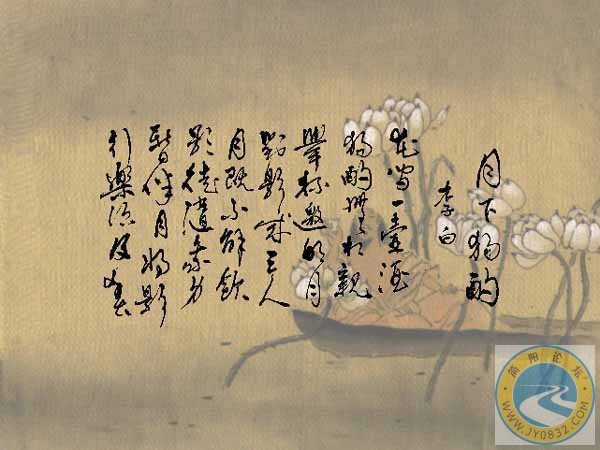 月下獨酌
李白
花間一壺酒
獨酌無相親
舉杯邀明月
對影成三人
月既不解飲
影徒隨我身
暫伴月將影
行樂須及春
简阳论坛
WWW.JY0832.COM